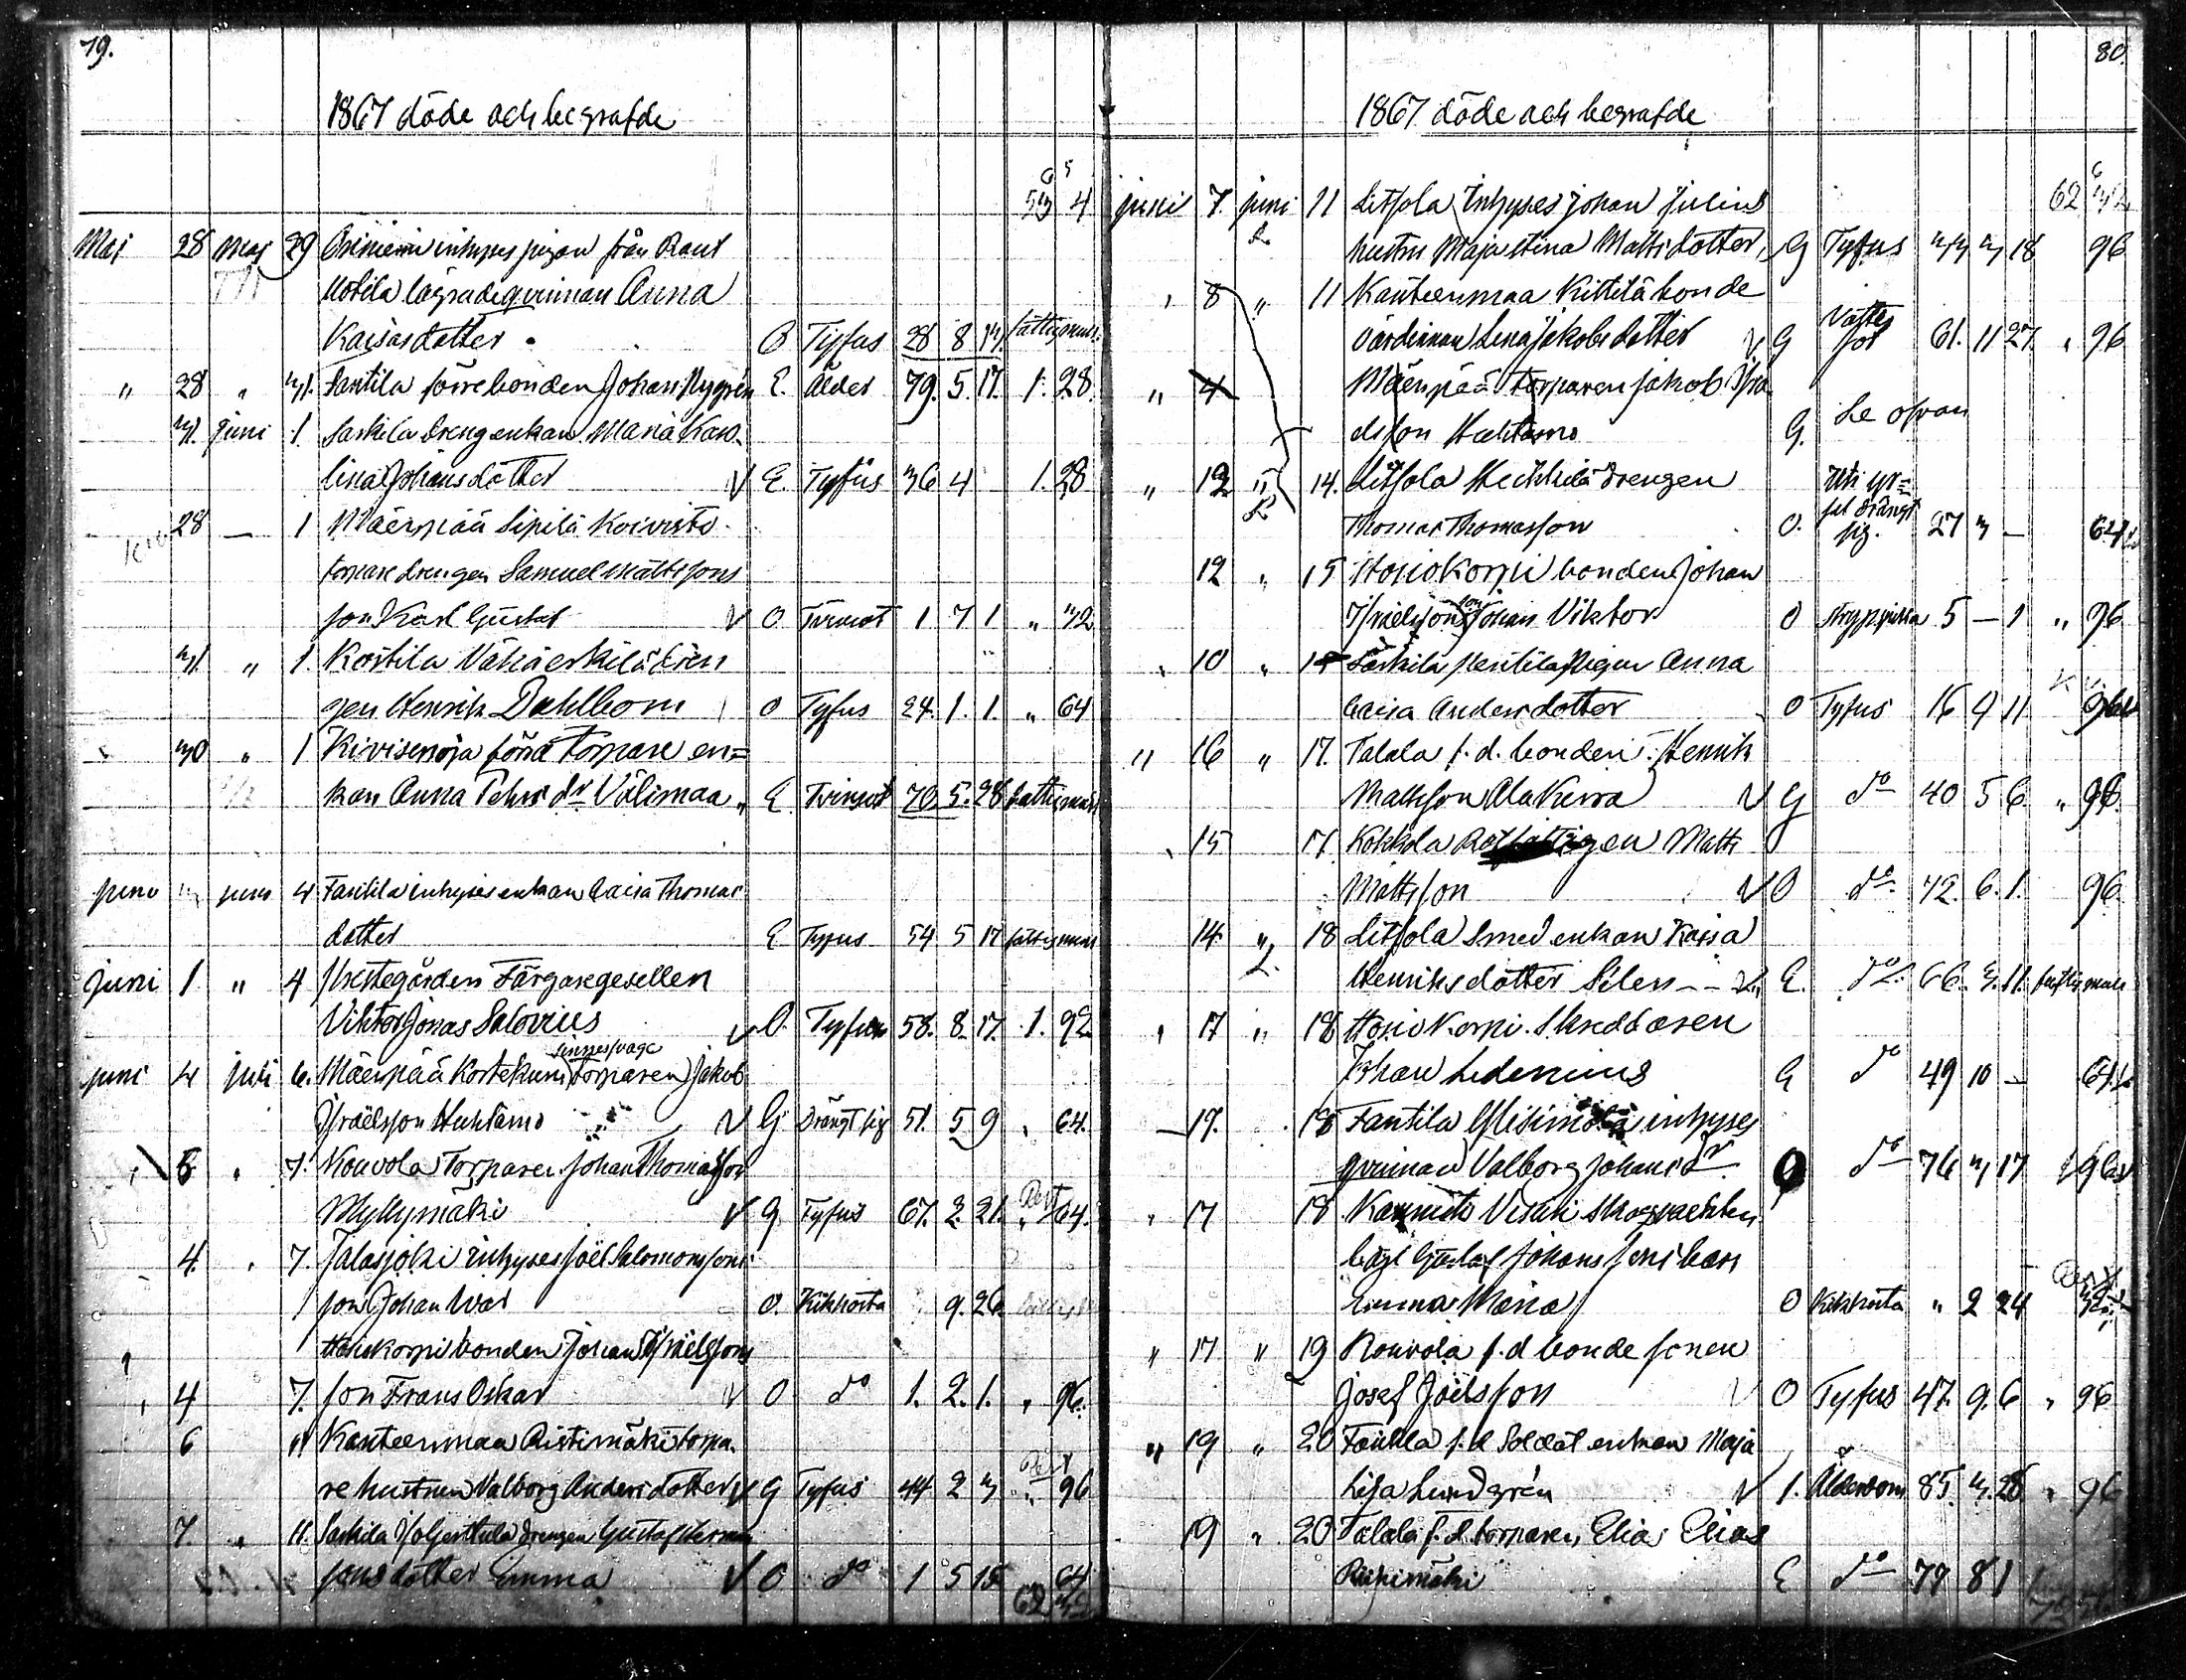 79.
1867 döde och begrafde
53 4
Maj 28 Maj 29 inhyses pigan från
lägrade qvinnan Anna
Kaisasdotter O Tyfus 28 8 fattigmed.
" 28 " 31. Fantila förre bonden Johan Nygrén E. Ålder 79. 5. 17. 1. 28.
31 juni 1 Sarkila drengenkan Maria Karo-
lina Johansdotter V E. Tyfus 36 4 1. 28
28 — 1 Mäenpää Sipilä Koivisto
torpare drengen Samuel Mattssons
son Karl Gustaf V O Tvinsot 1 7 1 " 32
31. " 1. Kostila Vähäerkilä dren
gen Henrik Dahlbom O Tyfus 24. 1. 1. " 64
30 " 1 Kivisenoja förra torpare en=
kan Anna Pehrs dr Välimaa E Tvinsot 70 5. 28 fattigmed
juni 3 juni 4 Fantila inhyses enkan Caisa Thomas
dotter E Tyfus 54 5 17 fattigmed
juni 1 " 4 Prestegården Färgaregesellen
Viktor Jonas Salovius V O. Tyfus 58. 8. 17. 1. 92
juni 4 juli 6. Mäenpää Kortekumi torparen Jakob
Israelsson Huhtamo V G Drängt sig 51. 5 9 " 64.
" 6 " 7. Kouvola Torparen Johan Thomasson
Myllymäki V G Tyfus 67. 2. 21. " 64.
4. " 7. Jalasjoki inhyses Joel Salomonssons
son Johan Ivar O. Kikhosta 9. 26.
Hosiokorpi bonden Johan Israelssons
" 4 7. son Frans Oskar V O do 1. 2. 1. " 96.
6 11 Kanteenmaa Ristimäki torpa-
re hustrun Valborg Andersdotter V G Tyfus 44 2 3 " 96
7. " 11. Sarkila drengen Gustaf
sons dotter Emma V O do 1 5 15 64
62
80.
1867 döde och begrafde
62 32
juni 7. juni 11 Litsola Inhyses Johan Julius
hustru Maja Stina Mattsdotter G Tyfus 33 3 18 96
" 8 " 11 Kanteenmaa Kittilä bonde
värdinnan Lena Jakobsdotter V G Vattusot 61. 11 27. " 96
" 4 Mäenpää Torparen Jakob Isra-
elsson Huhtamo G. Se ofvan
" 12 " 14. Litsola Heikkilä drengen
Thomas Thomasson O. drängt sig. 27 3 — 64
12 " 15 Hosiokorpi bonden Johan
Israelssons son Johan Viktor O Strypsjuka 5 — 1 " 96
" 10 " 15 Särkilä Penttilä Pigan Anna
Caisa Andersdotter O Tyfus 16 9 11 96
" 16 " 17. Talala f. d. bonden Henrik
Mattsson Alakirra V G do 40 5 6 " 96.
" 15 17. Kokkola Matts
Mattsson V O do 72. 6. 1. 96.
14. " 18 Litsola Smed enkan Kaisa
Henriksdotter Silen - - V E. do 66. 3. 11. fattigmed
" 17 " 18 Hosiokorpi Skreddaren
Johan Ledenius G do 49 10 — 64
— 17. 18 Fantila inhyses
qvinnan Valborg Johans dr O do 76 3 17 96
" 17 18 Skogvakten
Carl Gustaf Johanssons barn
Emma Maria O Kikhosta " 2 24
" 17 " 19 Kouvola f. d bonde sonen
Josef Joelsson V O Tyfus 47. 9. 6 " 96
" 19 " 20 f. d Soldat enkan Maja
Lisa Lundgrén V E. Ålderdom 85. 3. 28 " 96
19 " 20 Talala f. d. torparen, Elias Elias
Riihimäki E do 77 8 1